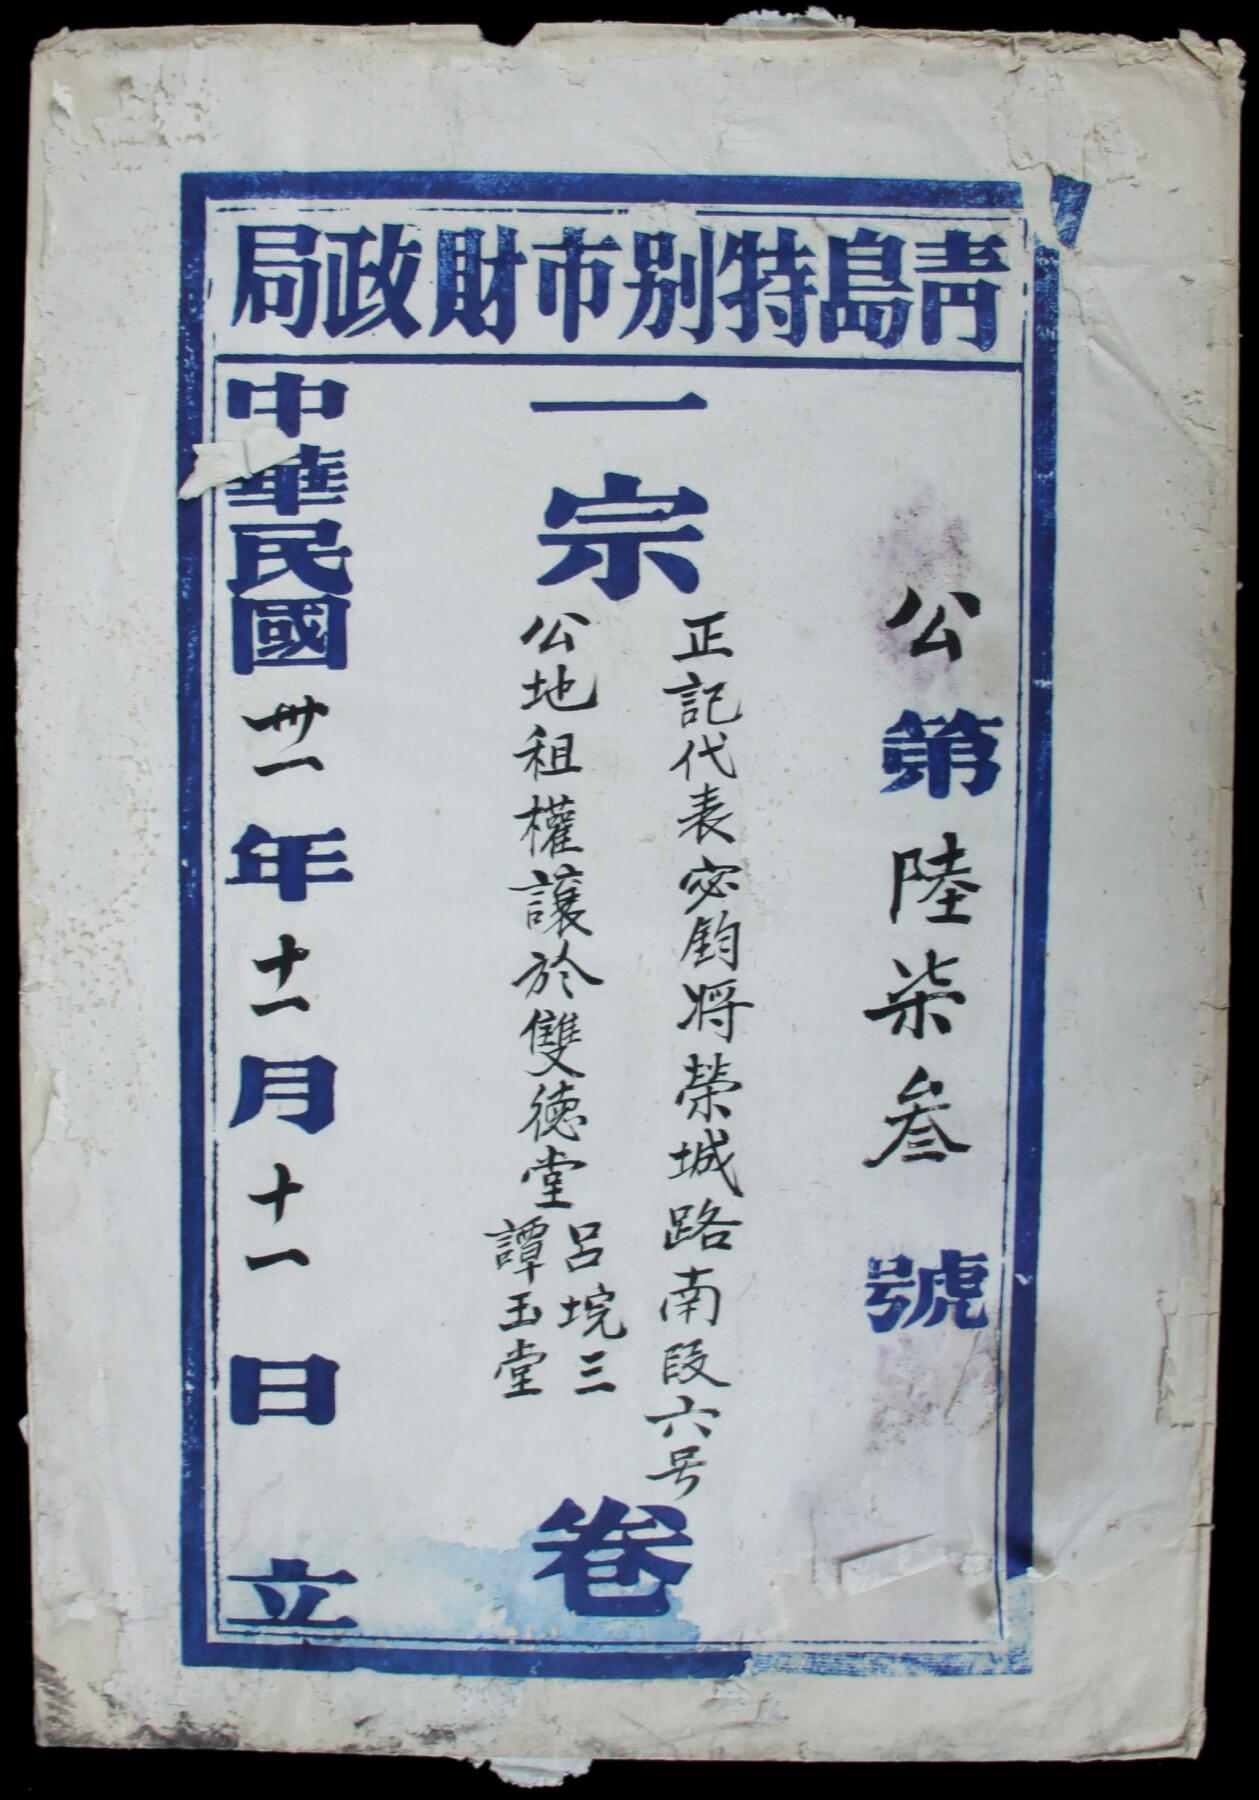 青島特別市財政局
公第陸柒叁號
一宗
正記代表宓鈞将榮城路南段六号
公地租權讓於雙德堂
呂垸三
譚玉堂
卷
中華民國卅一年十一月十一日立